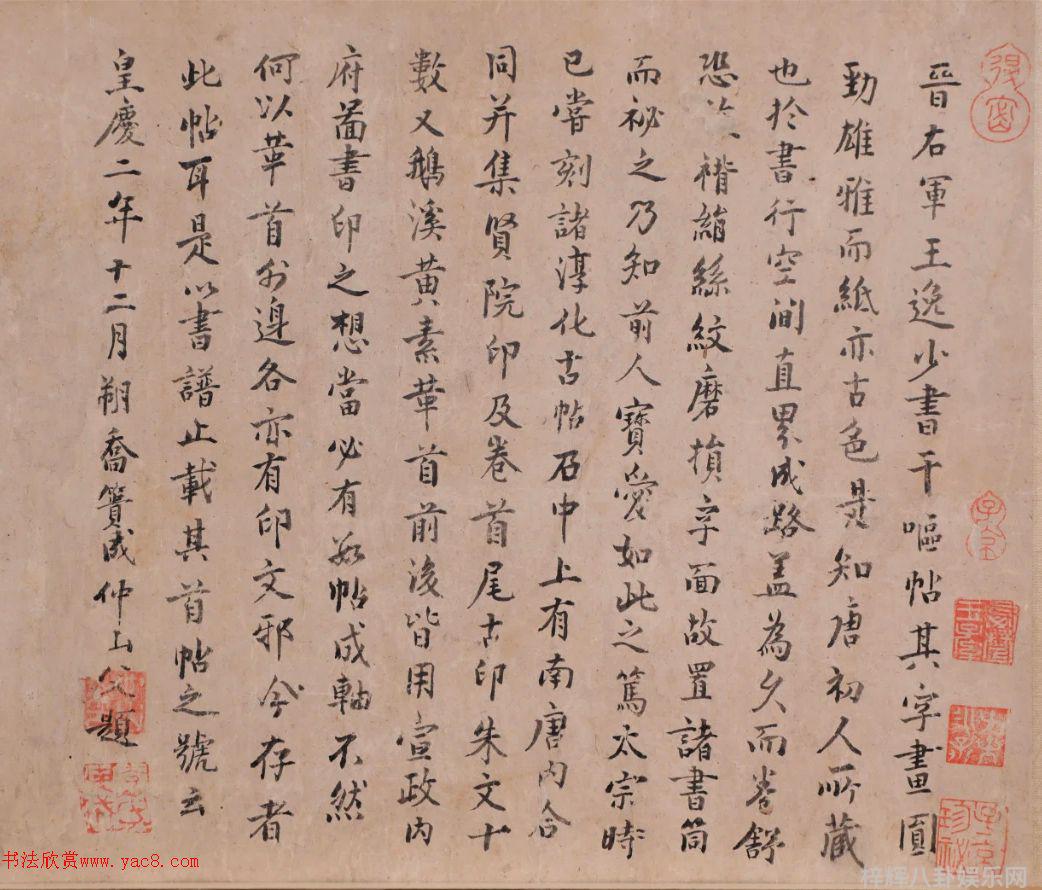 晉右軍王逸少書干嘔帖其字畫圓
勁雄雅而紙亦古色是知唐初人所藏
也於書行空間直界成路盖為久而卷舒
恐褙絹絲紋磨損字面故置諸書筒
而祕之乃知前人寶愛如此之篤太宗時
已嘗刻諸淳化古帖石中上有南唐內合
同并集賢院印及卷首尾古印朱文十
數又鵝溪黃素萆首前後皆用宣政內
府圖書印之想當必有數帖成軸不然
何以萆首外邊各亦有印文邪今存者
此帖耳是以書譜止載其首帖之號云
皇慶二年十二月朔喬簣成仲山父題
书法欣赏www.yac8.com
梓辉八卦娱乐网